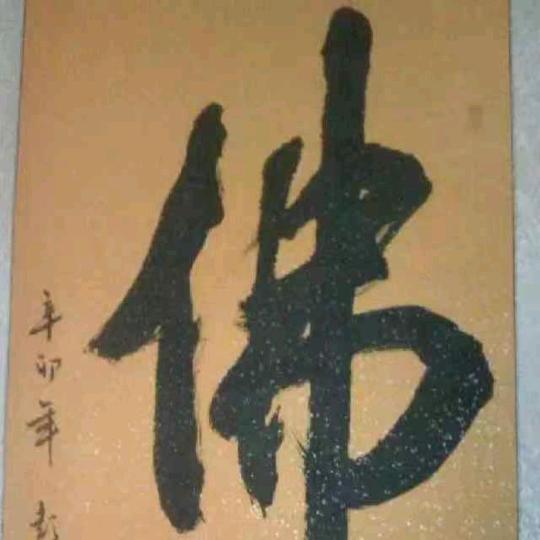 佛
辛卯年 彭